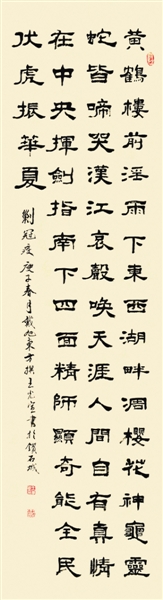 黃鶴樓前淫雨下東西湖畔凋櫻花神龜靈
蛇皆啼哭漢江哀聲喚天涯人間自有真情
在中央揮劍指南下四面精師顯奇能全民
伏虎振華夏
劉冠疫 庚子春月戴旭東方撰 王光宣書於鎖石城